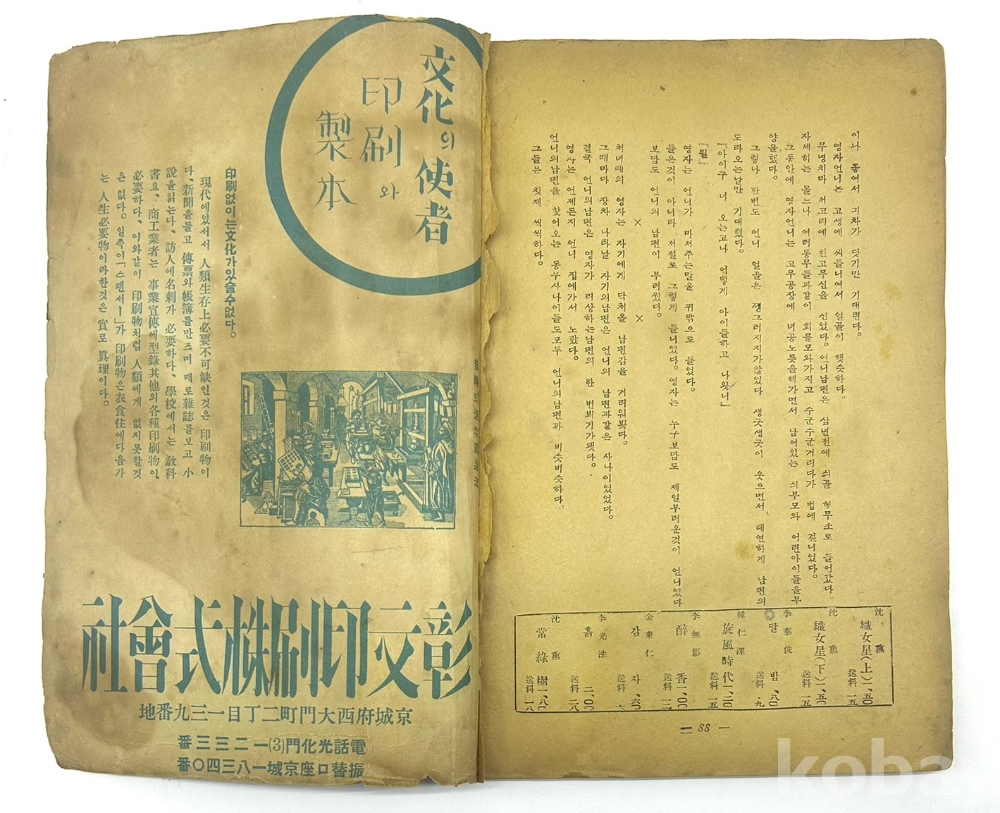 긔차가
영자언니는 고생에 씨들니여서 얼골이 햇슥하다.
무명치마 저고리에 힌고무신을 신었다. 언니남편은 삼년전에 싀골 형무소로 들어갔다.
자세히는 몰느나 여러동무들과같이 회를모와가지고 수군수군거리다가 법에 걸니었다.
그동안에 영자언니는 고무공장에 녀공노릇을해가면서 남어있는 싀부모와 어린아이들을부
양을했다.
그렇나 한번도 언니 얼골은 쟁그러지지가않었다 생긋생긋이 웃으면서, 태연하게 남편의
도라오는날만 기때렸다.
『아이구 너 오는고나 어떻게 아이들하고 나왓니』
『뭘』
영자는 언니가 마저주는말을 귀밖으로 들었다.
들은것이 아니라 저절로 그렇게 들니었다. 영자는 누구보담도 제일부러운것이 언니었다
보담도 언니의 남편이 부러웠다.
× × ×
처녀때의 영자는 자기에게 닥처올 남편감을 거리워봣다.
그때마다 장차 나타날 자기의남편은 언니의 남편과같은 사나이었었다.
결국 언니의남편은 영자가 리상하는남편의 한 번뵈기가됏다.
영자는 언제든지 언니 집에가서 노랐다.
언니의남편을 찾어오는 동무사나이들도모두 언니의남편과 비슷비슷하다.
그들은 첫재 씩씩하다.
沈熏
織女星(上)一、五〇
送料一五
沈熏
織女星(下)一、五〇
送料一五
李泰俊
달밤一、八〇
送料、九
韓仁澤
旋風時代一、二〇
送料一五
李無影
醉香一、〇〇
送料一五
金東仁
감자、六〇
送料
李光洙
흙二、〇〇
送料二八
沈熏
常綠樹一、八〇
送料一八
— 88 —
文化의使者
印刷와
製本
印刷없이는文化가있슬수없다。
現代에있서서 人類生存上必要不可缺인것은 印刷物이
다、新聞을돌고 傳票와帳簿를만즈며 때로雜誌를보고 小
說을읽는다、訪人에名刺가 必要하다、學校에서는 敎科
書요、商工業者는 事業宣傳에型錄其他의各種印刷物이、
必要하다、이와같이 印刷物처럼 人類에게 없지못할것
은 없다。일즉이「스펜서ー」가 印刷物은衣食住에다음가
는 人生必要物이라한것은 實로 眞理이다。
彰文印刷株式會社
京城府西大門町二丁目一三九番地
電話光化門(3)一二三三番
振替口座京城一八三四〇番
koba